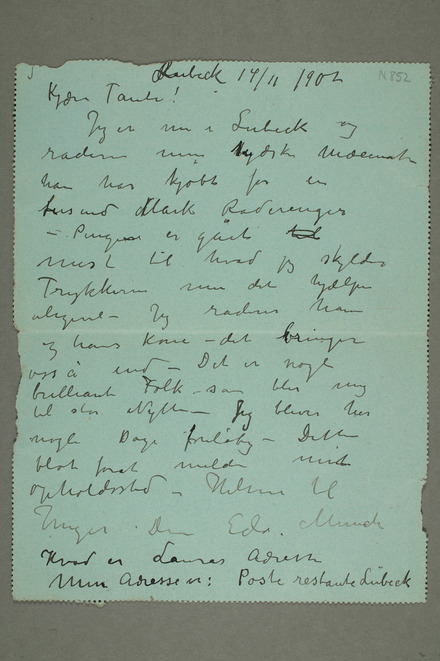 N 852
Lübeck 14/11 1902
Kjære Tante!
Jeg er nu i Lübeck og
raderer min tydske Mæcenat
han har kjøbt for en
tusind Mark Raderenger
– Pengene er gået
mest til hvad jeg skylder
Trykkerne men det hjælper
aligevel – Jeg raderer ham
og hans Kone – det bringer
også ind – Det er nogle
brilliante Folk – som blir mig
til stor Nytte – Jeg bliver her
nogle Dage foreløbig – Dette
blot forat melde mit
opholdssted – Hilsen til
Inger Din Edv. Munch
Hvad er Lauras Adresse
Min Adresse er: Poste restante Lübeck